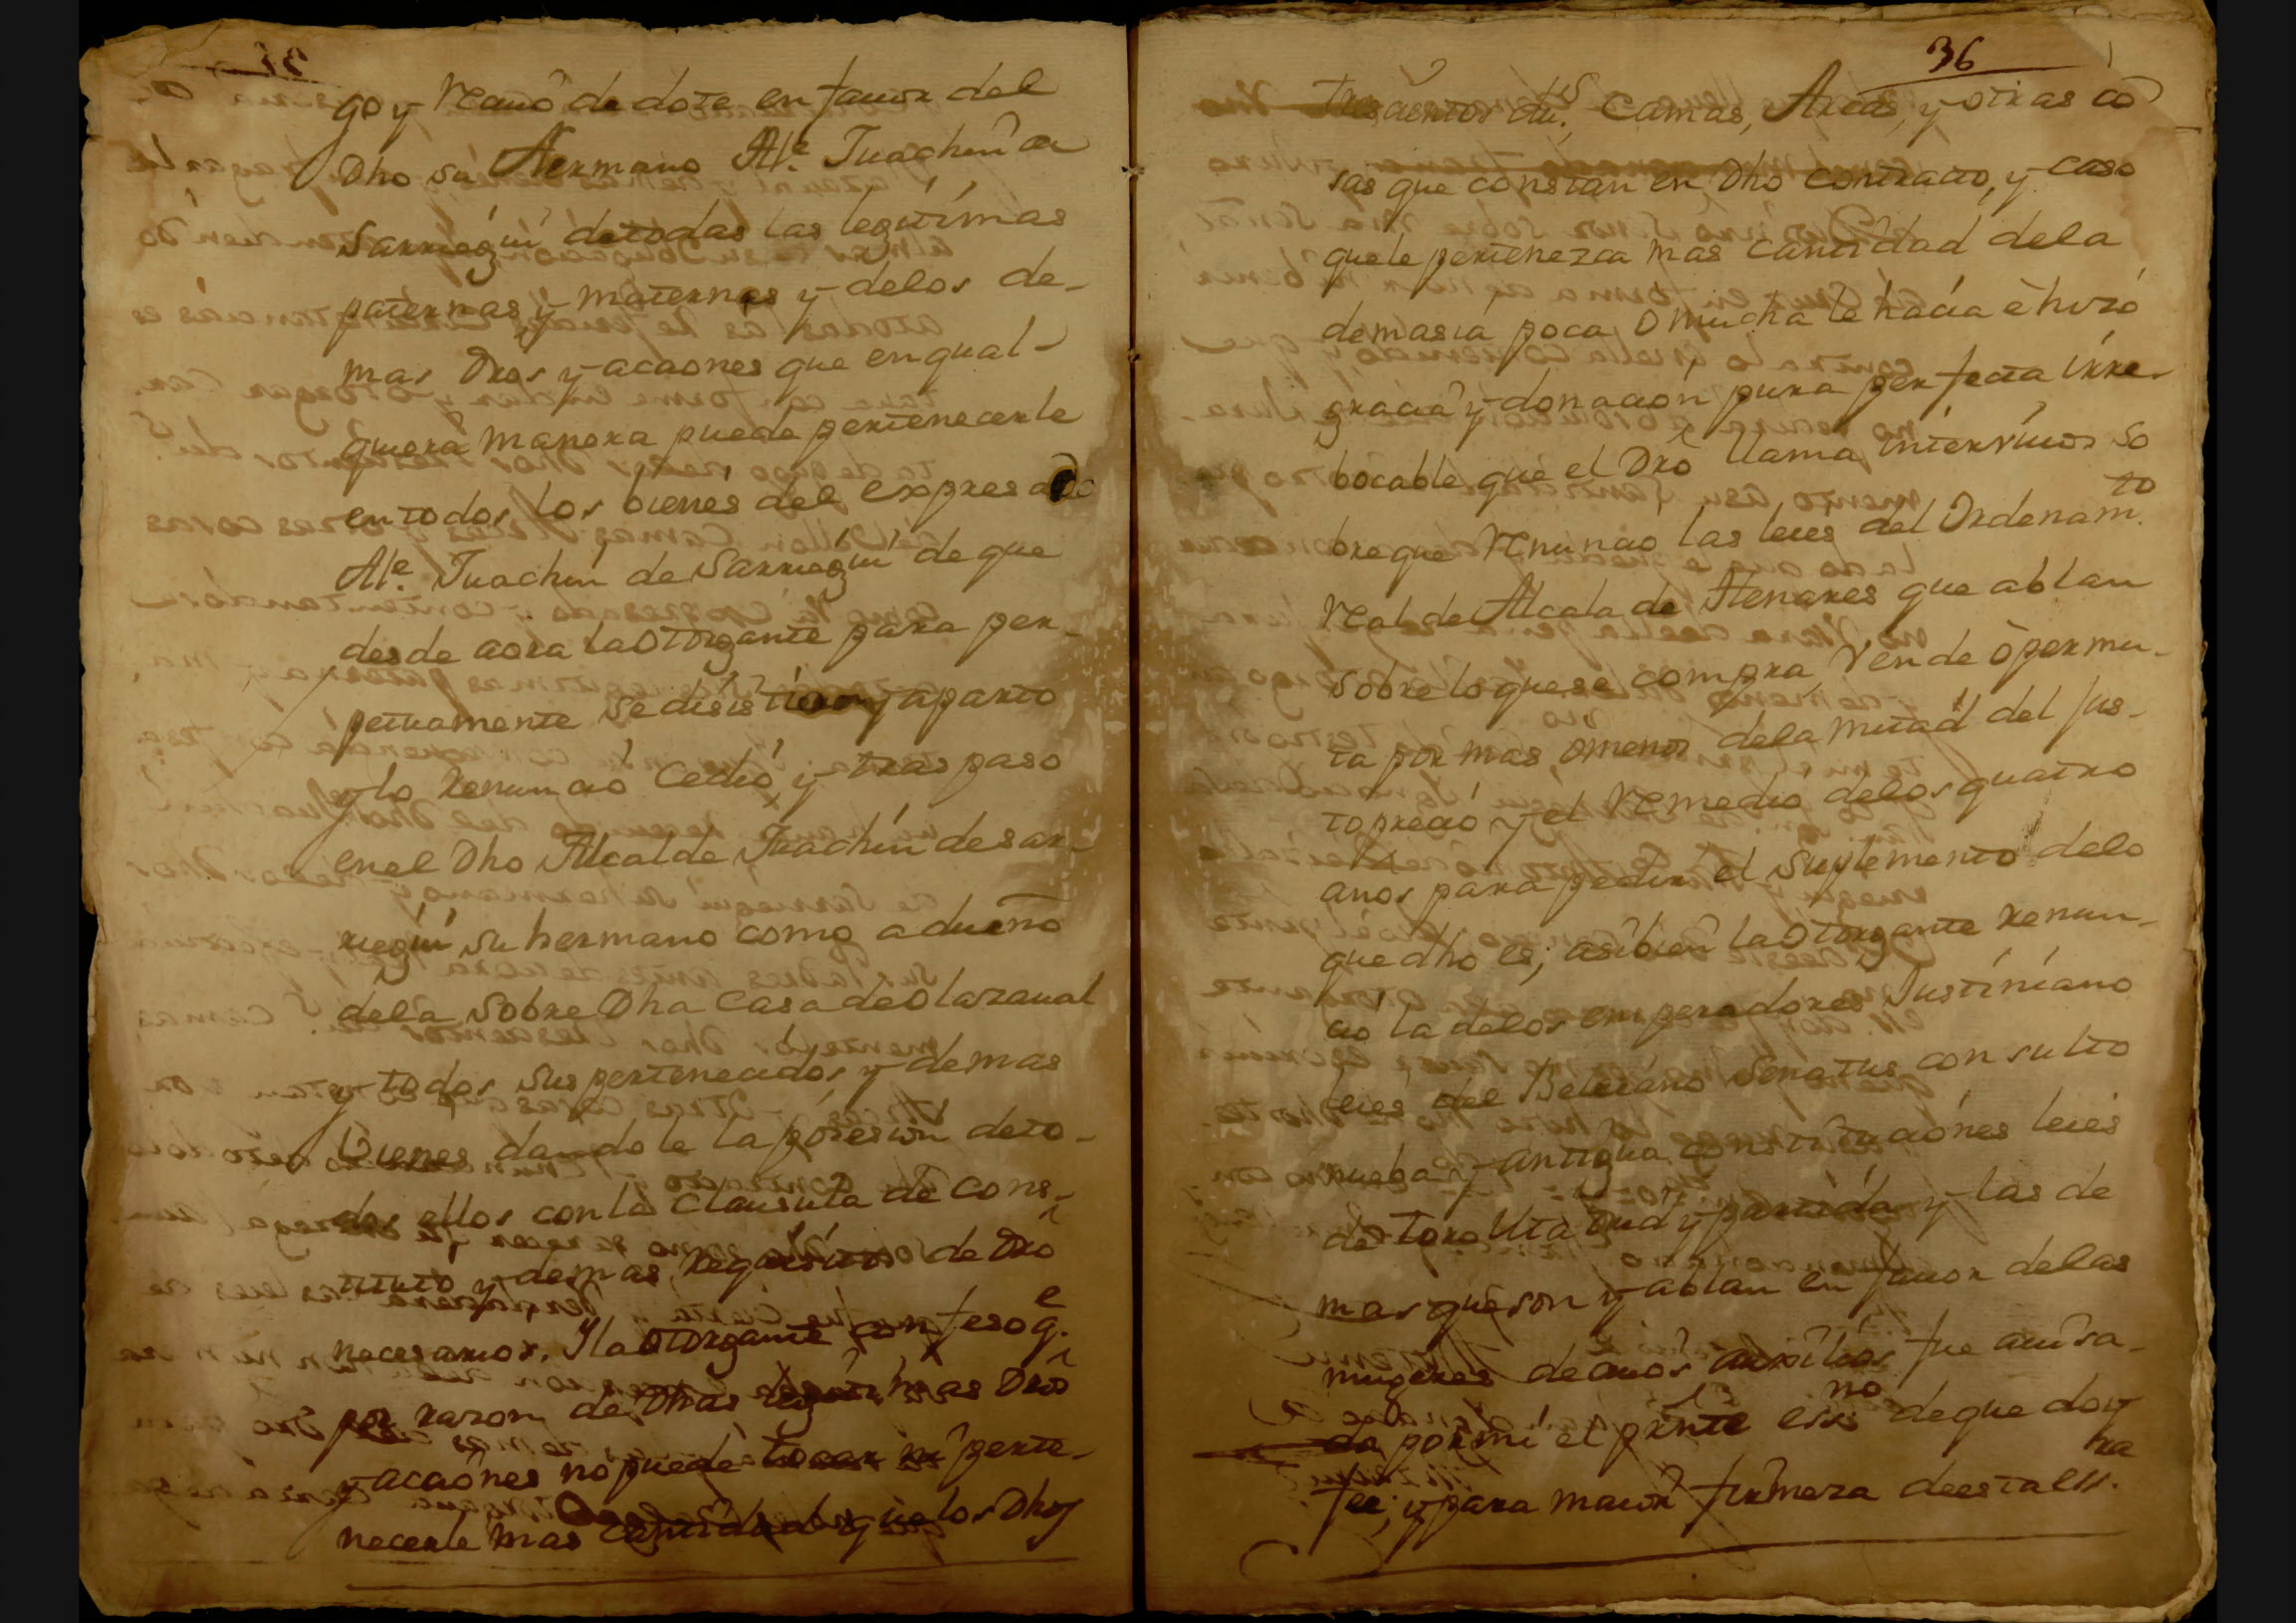 go y renuô de dote en fauor del
Dho su Hermano Ale. Juachin de
Sarriegui de todas las legitimas
paternas y maternas y delos de-
mas Dros y acciones que en qual-
quiera manera puede pertenecerle
en todos los bienes del expresado
Ale. Juachin de Sarriegui de que
desde aora la Otorgante para per-
petuamente se desistio y aparto
y lo renuncio Cedio, y traspaso
en el Dho Alcalde Juachin de sar-
riegui su hermano como a dueño
dela sobre Dha Casa de Olazaual
y todos sus pertenecidos y demas
bienes dandole la posesion deto-
dos ellos con la Clausula de Cons-
tituto y demas requisitos de Dro
necesarios. Y la Otorgante confeso q.e
por razon de Dhas legitimas Dro
y acciones no puede tocar ni perte-
necerle mas Cantidad que los Dhos
36
Tresçientos du.s, Camas, Arcas, y otras co
sas que constan en Dho Contrato, y caso
quele pertenezca mas cantidad dela
demasia poca o mucha le hacia è hizo
gracia y donacion pura perfecta irre-
bocable que el Dro llama intervivos so
breque renuncio las leies del Ordenam.to
real de Alcala de Henares que ablan
sobre lo que se compra, vende ò permu-
ta por mas, ò menos dela mitad del jus-
to precio y el remedio delos quatro
anos para pedir el suplemento delo
que dho es; asibien la Otorgante renun-
cio la delos emperadores Justiniano
leies del Beleiano Senatus consulto
nueba y antigua constituciones leies
de Toro Madrid y partida y las de
mas que son y ablan en fauor delas
mugeres de cuios auxilios fue auisa-
da por mi el prnte essno de que doy
fee; y para maior firmeza de esta ess.ra